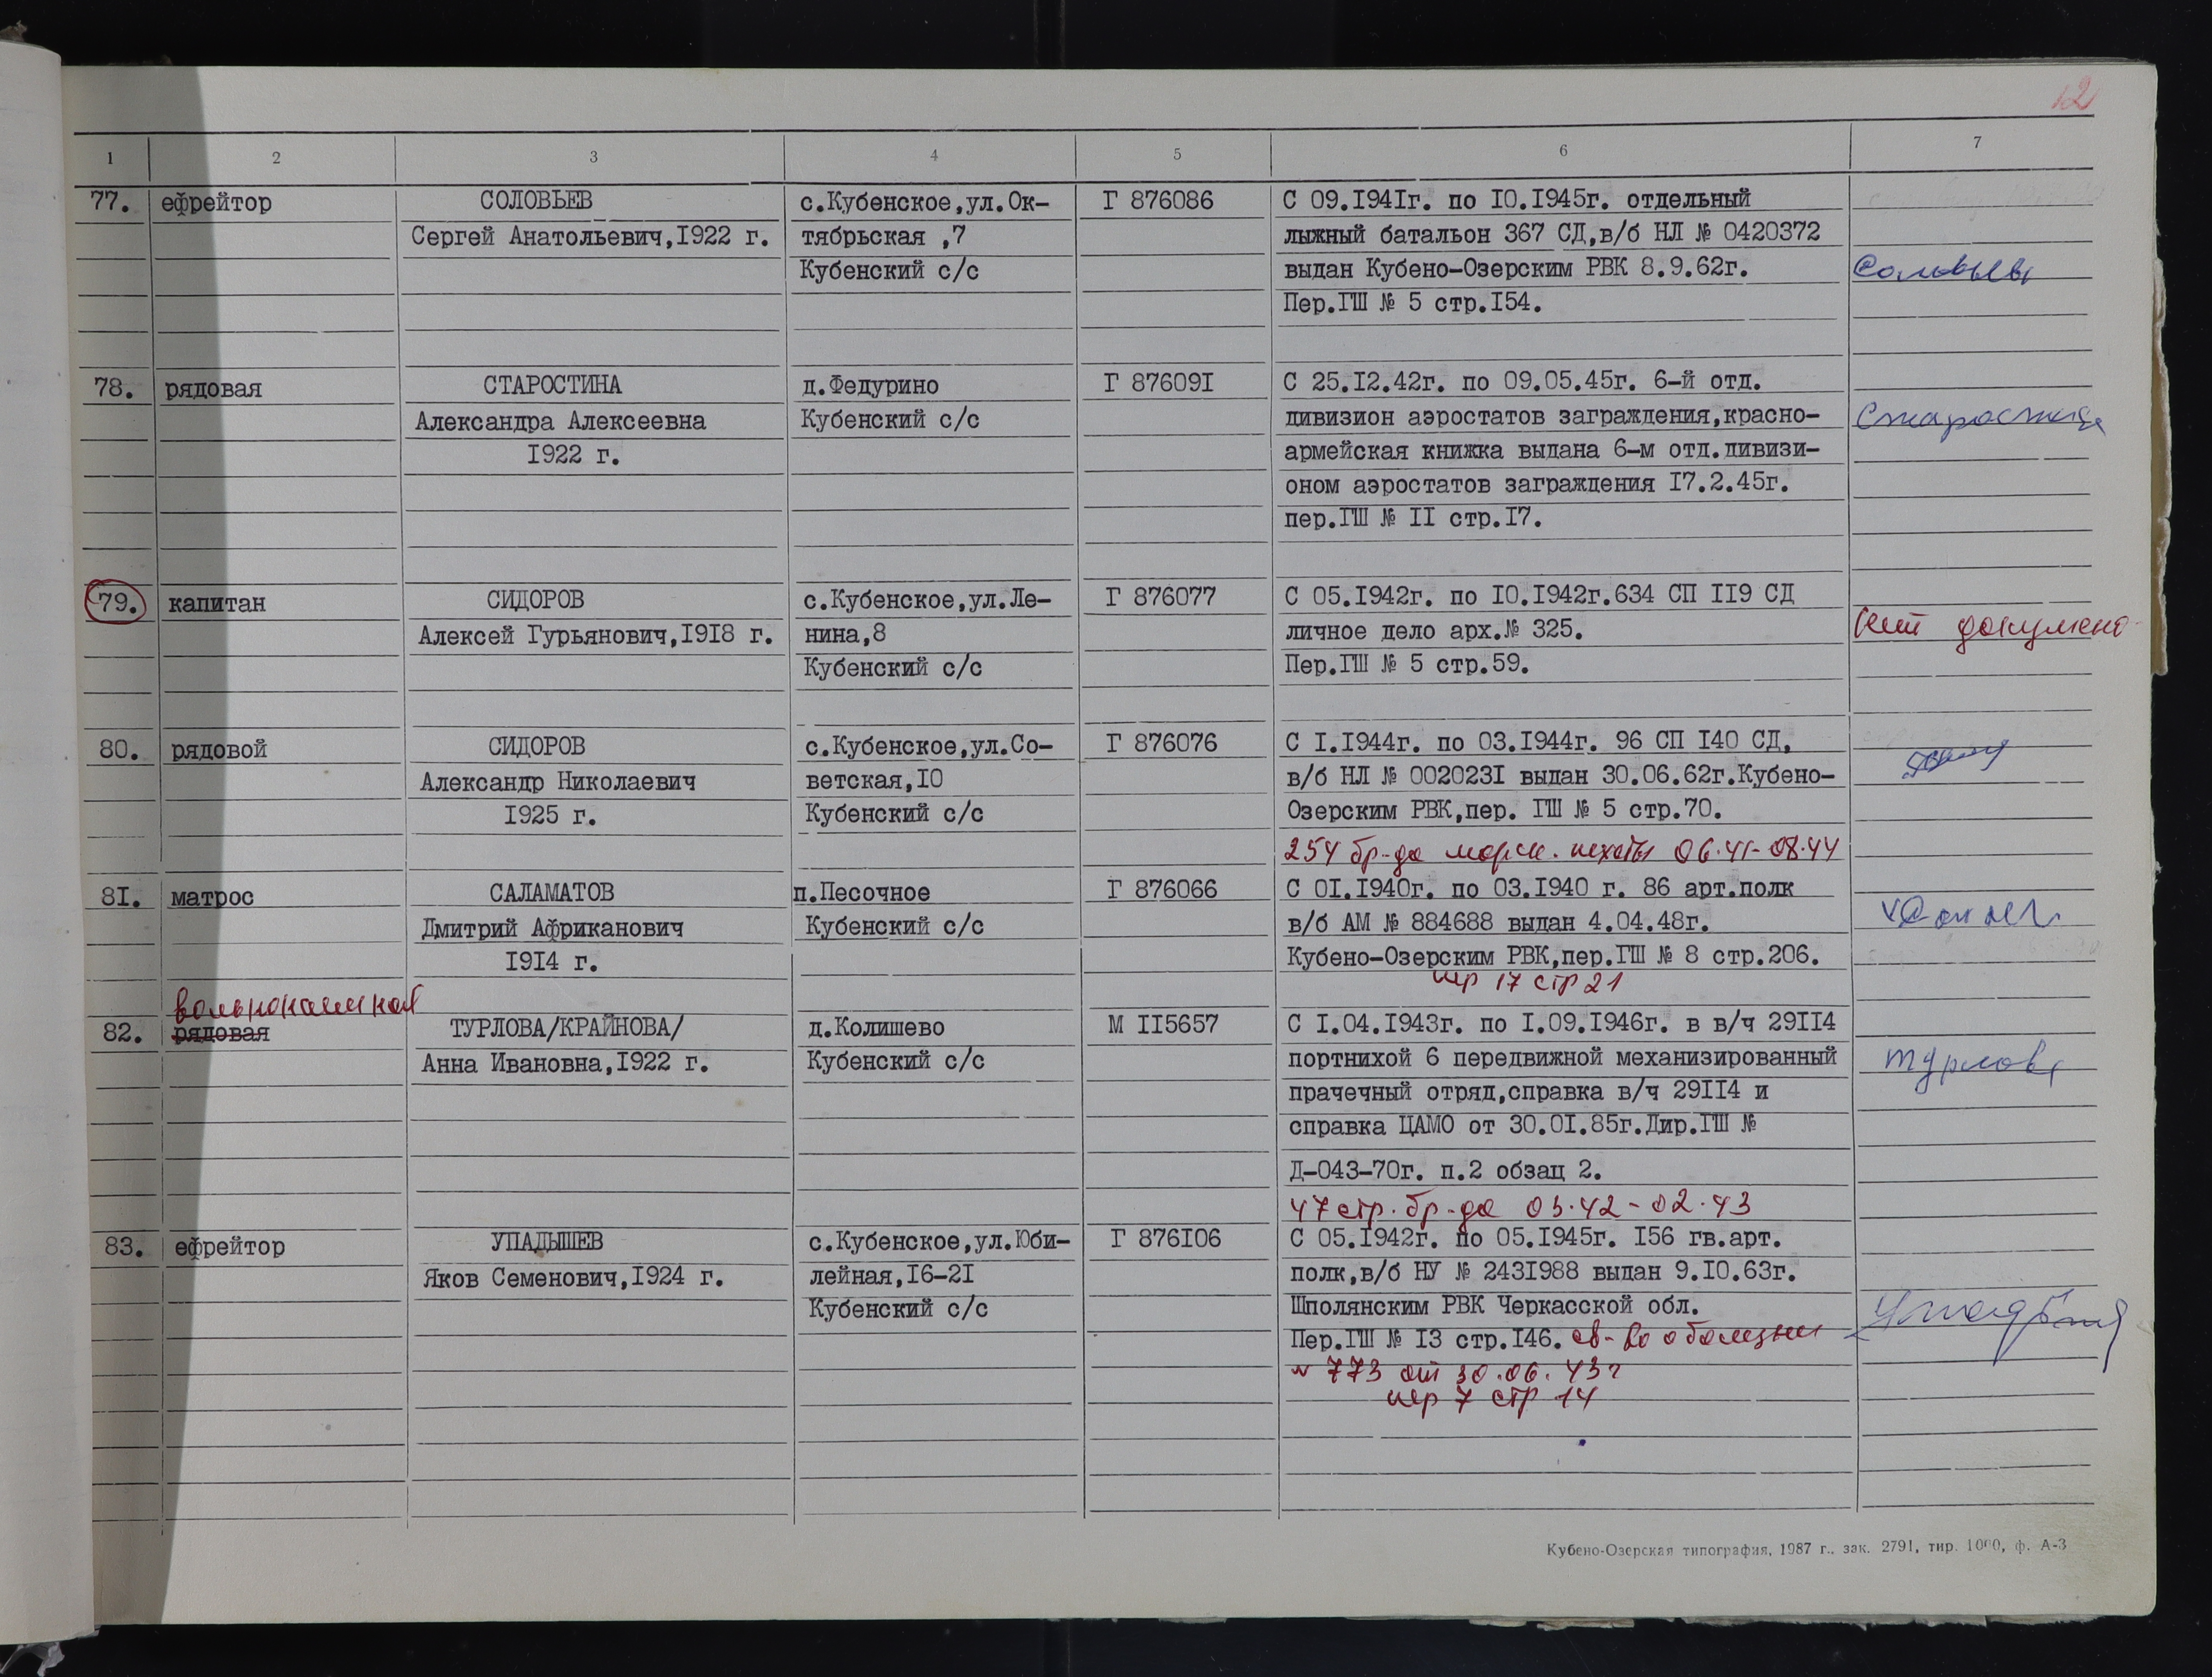 12
1 2 3 4 5 6 7
77. ефрейтор СОЛОВЬЕВ с.Кубенское,ул.Ок- Г 876086 С 09.I94Iг. по I0.I945г. отдельный
Сергей Анатольевич,I922 г. тябрьская ,7 лыжный батальон 367 СД,в/б НЛ № 0420372
Кубенский с/с выдан Кубено-Озерским РВК 8.9.62г. Соловьев
Пер.ГШ № 5 стр.I54.
78. рядовая СТАРОСТИНА д.Федурино Г 87609I С 25.I2.42г. по 09.05.45г. 6-й отд.
Александра Алексеевна Кубенский с/с дивизион аэростатов заграждения,красно- Старостина
I922 г. армейская книжка выдана 6-м отд.дивизи-
оном аэростатов заграждения I7.2.45г.
пер.ГШ № II стр.I7.
79. капитан СИДОРОВ с.Кубенское,ул.Ле- Г 876077 С 05.I942г. по I0.I942г.634 СП II9 СД
Алексей Гурьянович,I9I8 г. нина,8 личное дело арх.№ 325. Нет докумено
Кубенский с/с Пер.ГШ № 5 стр.59.
80. рядовой СИДОРОВ с.Кубенское,ул.Со- Г 876076 С I.I944г. по 03.I944г. 96 СП I40 СД,
Александр Николаевич ветская,I0 в/б НЛ № 002023I выдан 30.06.62г.Кубено-
I925 г. Кубенский с/с Озерским РВК,пер. ГШ № 5 стр.70.
254 бр-да морск. пехоты 06.41-08.44
8I. матрос САЛАМАТОВ п.Песочное Г 876066 С 0I.I940г. по 03.I940 г. 86 арт.полк
Дмитрий Африканович Кубенский с/с в/б АМ № 884688 выдан 4.04.48г.
I9I4 г. Кубено-Озерским РВК,пер.ГШ № 8 стр.206.
пер 17 стр 21
вольнонаемная
82. рядовая ТУРЛОВА/КРАЙНОВА/ д.Колишево М II5657 С I.04.I943г. по I.09.I946г. в в/ч 29II4
Анна Ивановна,I922 г. Кубенский с/с портнихой 6 передвижной механизированный Турлова
прачечный отряд,справка в/ч 29II4 и
справка ЦАМО от 30.0I.85г.Дир.ГШ №
Д-043-70г. п.2 обзац 2.
47 стр. бр-да 03.42-02.43
83. ефрейтор УПАДЫШЕВ с.Кубенское,ул.Юби- Г 876I06 С 05.I942г. по 05.I945г. I56 гв.арт.
Яков Семенович,I924 г. лейная,I6-2I полк,в/б НУ № 243I988 выдан 9.I0.63г.
Кубенский с/с Шполянским РВК Черкасской обл.
Пер.ГШ № I3 стр.I46. св-во о болезни
№ 773 от 30.06.43г
пер 7 стр 14
Кубено-Озерская типография, 1987 г., зак. 2791, тир. 1000, ф. А-3